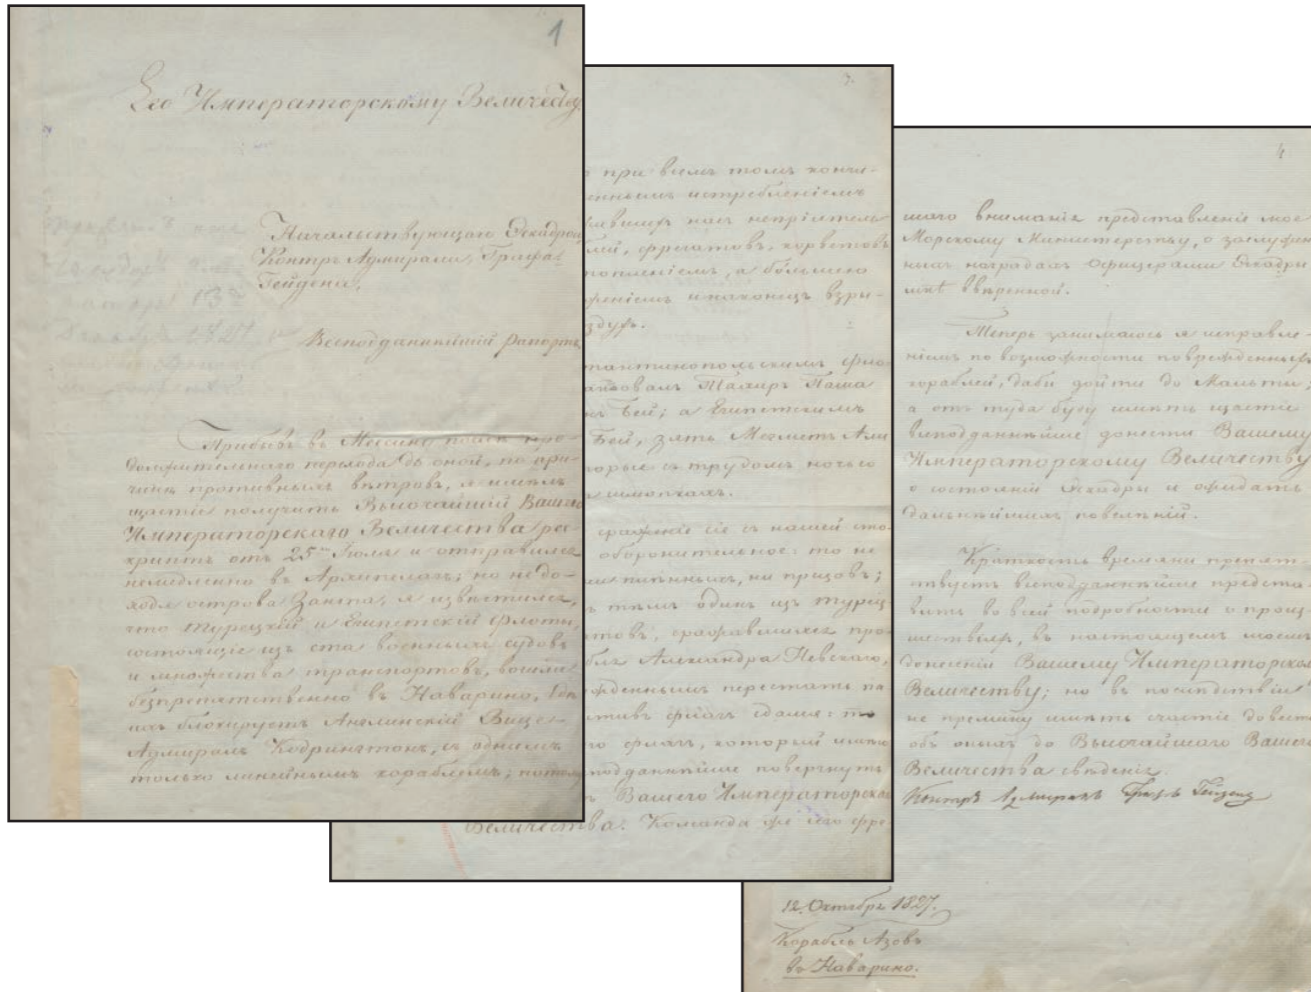 1
Его Императорскому Величеству
Начальствующаго Эскадрою
Контръ Адмирала, Графа
Гейдена,
Всеподданнѣйшій рапортъ
Прибывъ въ Мессину послѣ про-
должительнаго перехода до оной, по при-
чинѣ противныхъ вѣтровъ, я имѣлъ
щастіе получить Высочайшій Вашего
Императорскаго Величества рес-
криптъ отъ 25го Іюля и отправился
немедленно въ Архипелагъ; но не до-
ходя острова Занта, я извѣстился,
что Турецкій и Египетскій флоты,
состоящіе изъ ста военныхъ судовъ
и множества транспортовъ, вошли
безпрепятственно въ Наварино,
ихъ блокируетъ Англинскій Вице-
Адмиралъ Кодрингтонъ, съ однимъ
только линѣйнымъ кораблемъ;
3.
при всемъ томъ кончи-
истребленіемъ
насъ непріятель
фрегатовъ, корветовъ
а большею
и наконецъ взры-
флo
Тахиръ Паша
Бей; а Египетскимъ
Бей, зять Мегметъ Али
съ трудомъ ночью
сраженіе сіе съ нашей сто
оборонительное: то не
плѣнныхъ, ни призовъ;
тѣмъ одинъ изъ Турец
сражавшихся про
Александра Невскаго,
перестать па
флагъ сдался: то
флагъ, который имѣю
повергнуть
Вашего Императорска
Величества. Команда же сего фре
4
шаго вниманія представленіе мое
Морскому Министерству, о заслужен
ныхъ наградахъ Офицерами Эскадры
мнѣ ввѣренной.
Теперь занимаюсь я исправле
ніемъ по возможности поврежденныхъ
кораблей, дабы дойти до Мальты,
а отъ туда буду имѣть щастіе
всеподданнѣйше донести Вашему
Императорскому Величеству
о состояніи Эскадры и ожидать
дальнѣйшихъ повелѣній.
Краткость времяни препят-
ствуетъ всеподданнѣйше предста
вить во всей подробности о произ
шествіяхъ, въ настоящемъ моемъ
донесеніи Вашему Императорском
Величеству; но въ послѣдствіи
не премину имѣть счастіе довести
объ оныхъ до Высочайшаго Вашего
Величества свѣденія.
Контръ Адмиралъ Графъ Гейденъ
12. Октября 1827.
Корабль Азовъ
въ Наварино.